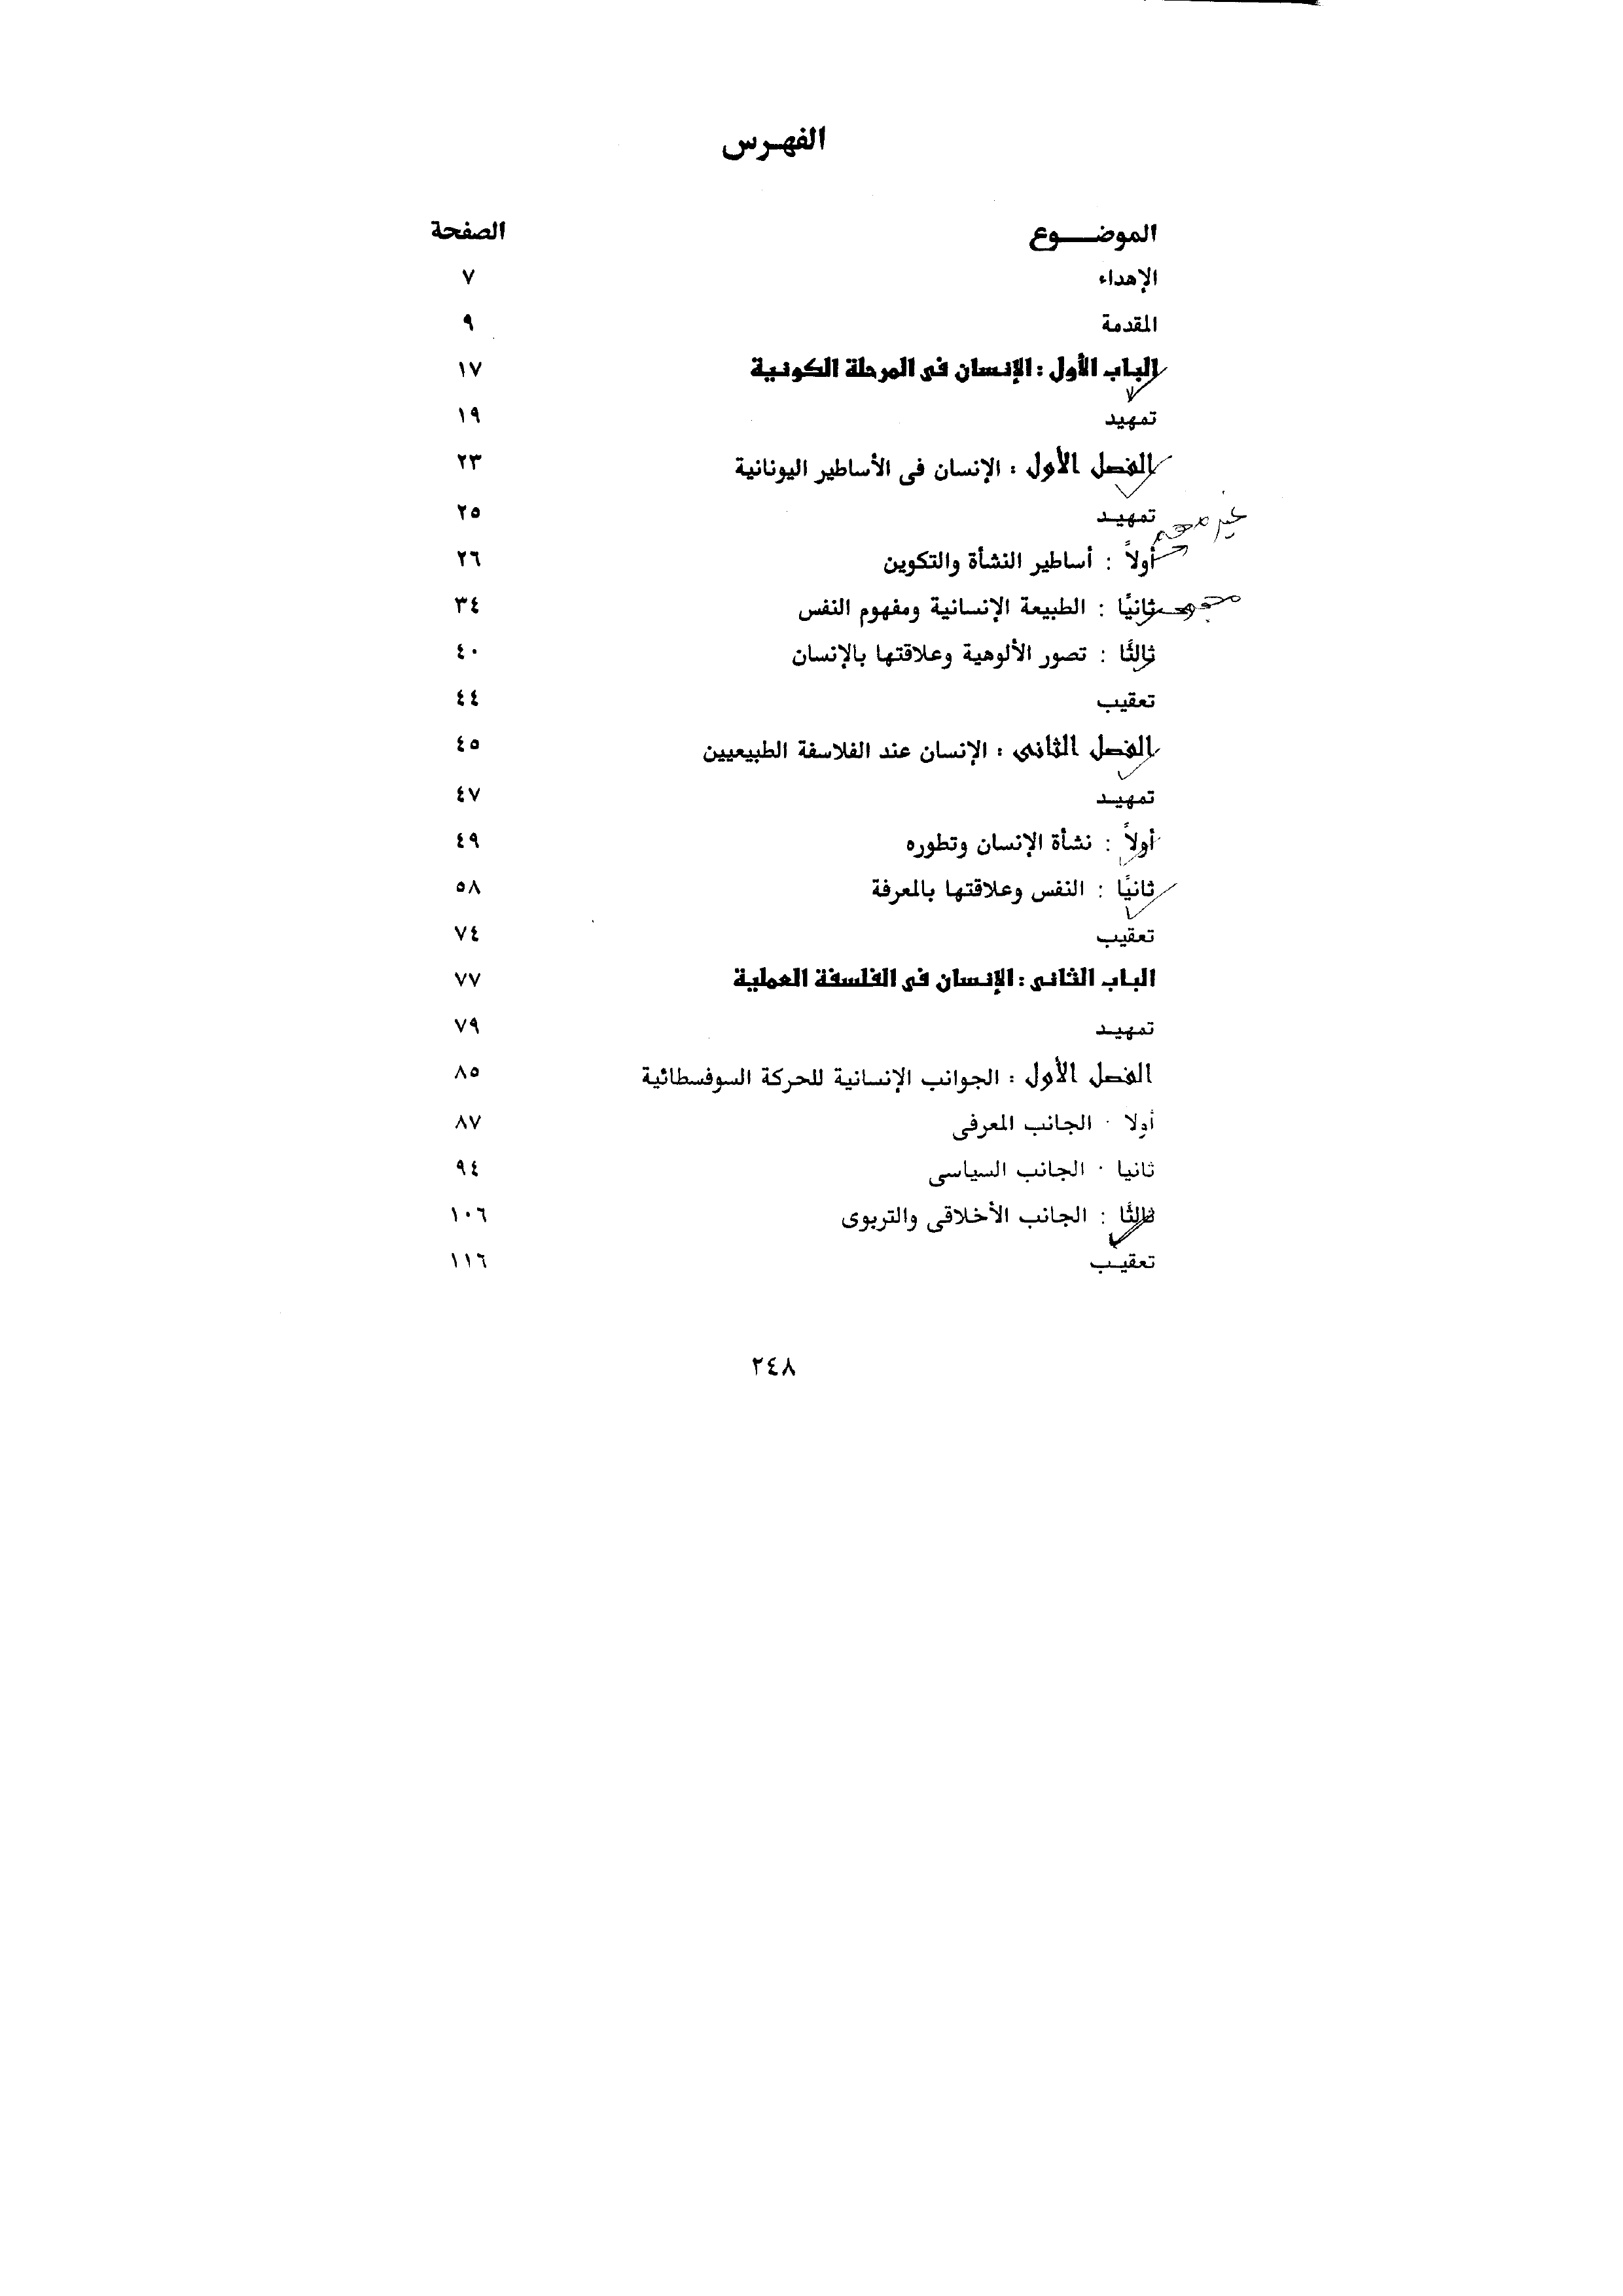 الفهرس
الموضوع الصفحة
الإهداء ٧
المقدمة ٩
الباب الأول : الإنسان فى المرحلة الكونية ١٧
تمهيد ١٩
الفصل الأول : الإنسان فى الأساطير اليونانية ٢٣
تمهيد ٢٥
أولاً : أساطير النشأة والتكوين ٢٦
ثانيًا : الطبيعة الإنسانية ومفهوم النفس ٣٤
ثالثًا : تصور الألوهية وعلاقتها بالإنسان ٤٠
تعقيب ٤٤
الفصل الثانى : الإنسان عند الفلاسفة الطبيعيين ٤٥
تمهيد ٤٧
أولاً : نشأة الإنسان وتطوره ٤٩
ثانيًا : النفس وعلاقتها بالمعرفة ٥٨
تعقيب ٧٤
الباب الثانى : الإنسان فى الفلسفة العملية ٧٧
تمهيد ٧٩
الفصل الأول : الجوانب الإنسانية للحركة السوفسطائية ٨٥
أولا · الجانب المعرفى ٨٧
ثانيا · الجانب السياسى ٩٤
ثالثًا : الجانب الأخلاقى والتربوى ١٠٦
تعقيب ١١٦
٢٤٨